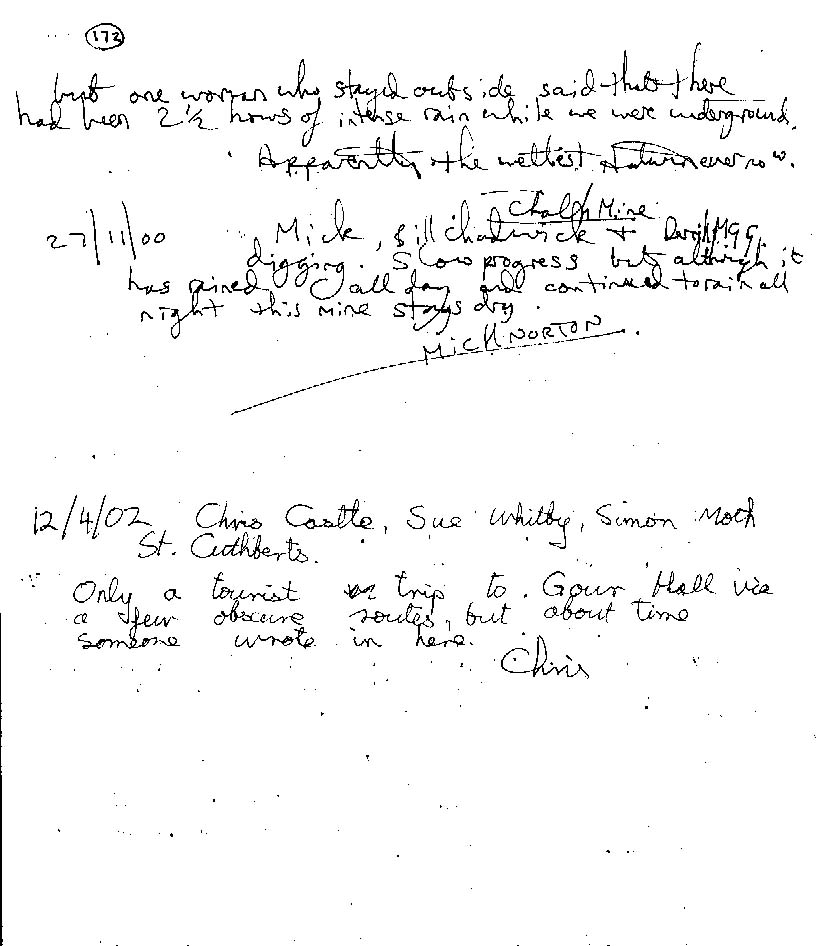 172
but one woman who stayed outside said that there
had been 2½ hours of intense rain while we were underground.
Apparently the wettest Autumn ever now.
Chalfh Mine
27/11/00 Mick, Bill Chadwick +
digging. Slow progress but although it
has rained all day and continued to rain all
night this mine stays dry.
MICK NORTON.
12/4/02 Chris Castle, Sue Whitby, Simon Moth
St. Cuthberts.
Only a tourist trip to Gour Hall via
a few obscure routes, but about time
someone wrote in here.
Chris